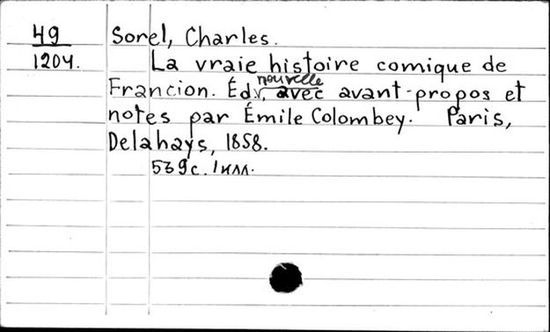 49 Sorel, Charles.
1204. La vraie histoire comique de
Francion. Éd. nouvelle, avec avant-propos et
notes par Émile Colombey. Paris,
Delahays, 1858.
539c. 1илл.